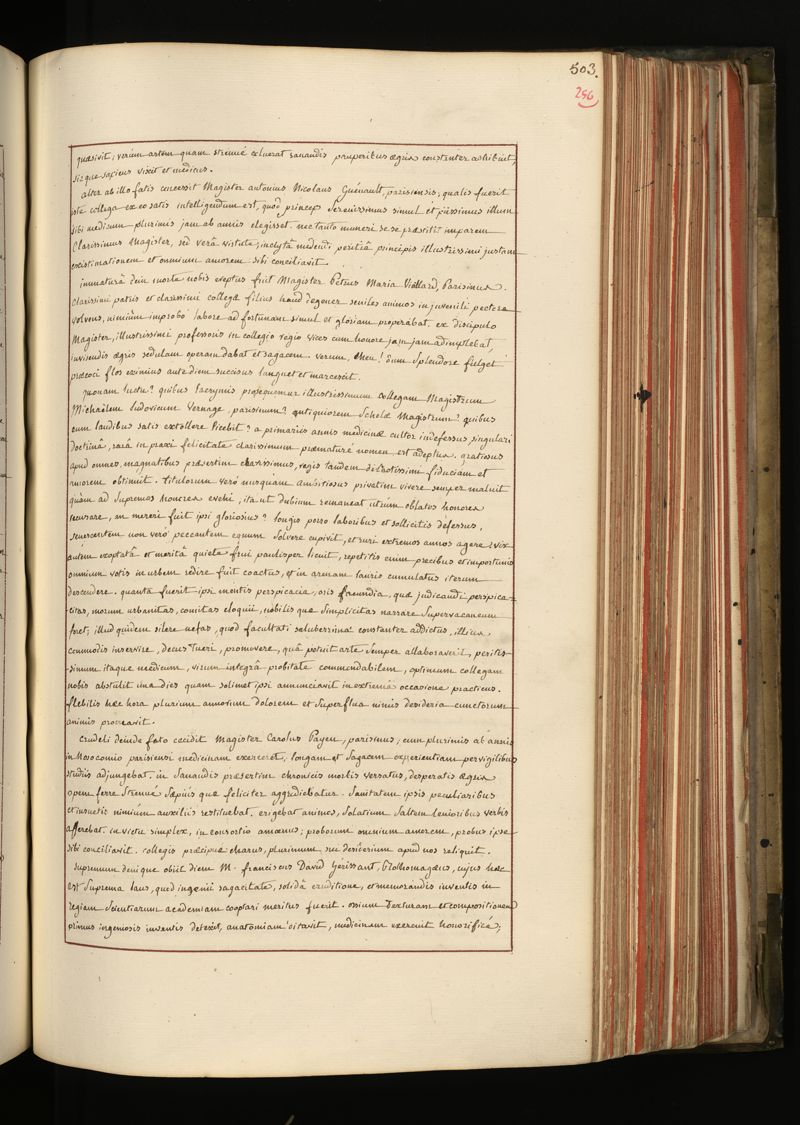 503.
256
quæsivit; verùm artem quam strenuè coluerat sanandis pauperibus ægris constanter adhibuit,
sicque sapiens vixit et medicus.
alter ab illo fatis concessit Magister antonius Nicolaus Guénault, parisiensis; qualis fuerit
iste collega ex eo satis intelligendum est, quod princeps serenissimus simul et piissimus illum
sibi medicum plurimis jam ab annis elegisset. nec tanto muneri se se præstitit imparem
Clarissimus Magister, sed verâ virtute, inclytâ medendi peritiâ principis illustrissimi justam
existimationem et omnium amorem sibi conciliavit.
immaturâ dein morte nobis ereptus fuit Magister Petrus Maria Viollard, Parisinus.
Clarissimi patris et clarissimi collegæ filius haud degener seniles animos in juvenili pectore
volvens, nimiùm improbo labore ad fortunam simul et gloriam properabat. ex discipulo
Magister, illustrissimi professoris in collegio regio vices cum honore jam jam adimplebat,
invisendis ægris sedulam operam dabat et sagacem. verum, eheu! dum splendore fulget
præcoci flos eximius ante diem succisus languet et marcescit.
quonam luctu? quibus lacrymis prosequemur illustrissimum collegam Magistrum
Michaëlem Ludovicum Vernage, parisinum? antiquiorem Scholæ Magistrum? quibus
eum laudibus satis extollere licebit? a primariis annis medicinæ cultor indefessus, singulari
doctrinâ, rarâ in praxi felicitate clarissimum præmature nomen est adeptus. gratiosus
apud omnes, magnatibus præsertim charissimus, regis tandem dilectissimi fiduciam et
amorem obtinuit. titulorum verò nusquam ambitiosus privatim vivere semper maluit
quàm ad supremos honores evehi, ita ut dubium remaneat utrùm oblatos honores
recusare, an mereri fuit ipsi gloriosius? longis porro laboribus et sollicitis defessus,
senescentem non verò peccantem equum solvere cupivit, et ruri extremos annos agere: vix
autem exoptatâ et meritâ quiete frui paulisper licuit, repetitis enim precibus et importunis
omnium votis in urbem redire fuit coactus, et in arenam lauris cumulatus iterum
descendere. quanta fuerit ipsi mentis perspicacia, oris facundia, quæ judicandi perspica-
citas, morum urbanitas, comitas eloquii, nobilis quæ simplicitas narrare supervacaneum
foret; illud quidem silere nefas, quod facultati saluberrimæ constanter addictus, illius
commodis inservire, decus tueri, promovere, quâ potuit arte semper allaboraverit, peritis-
-simum itaque medicum, virum integrâ probitate commendabilem, optimum collegam
nobis abstulit una dies quam solimet ipsi annunciavit in extremâ occasione practicus.
flebilis hæc hora plurium annorum dolorem et superflua nimis desideria cunctorum
animis procreavit.
Crudeli deinde fato cecidit Magister Carolus Payen, parisinus; cum plurimis ab annis
in Nosocomio parisiensi medicinam exerceret, longam et sagacem experientiam pervigilibus
studiis adjungebat. in sanandis præsertim chronicis morbis versatus, desperatis ægris
opem ferre strenuè sæpiùs que feliciter aggrediebatur. Sanitatem ipsis peculiaribus
et insuetis nimiùm auxiliis restituebat, erigebat animos, solatium saltem lenioribus verbis
afferebat. in victu simplex, in consortio amœnus; proborum omnium amorem, probus ipse
sibi conciliavit. collegis præcipuè charus, plurimum sui desiderium apud nos reliquit.
supremum denique obiit diem M. franciscus David Hérissant, Rothomagæus, cujus hæc
est suprema laus, quod ingenii sagacitate, solidâ eruditione, et memorandis inventis in
regiam Scientiarum academiam cooptari meritus fuerit. ossium texturam et compositionem
primus ingeniosis inventis detexit, anatomiam ditavit, medicinam exercuit honorificè;